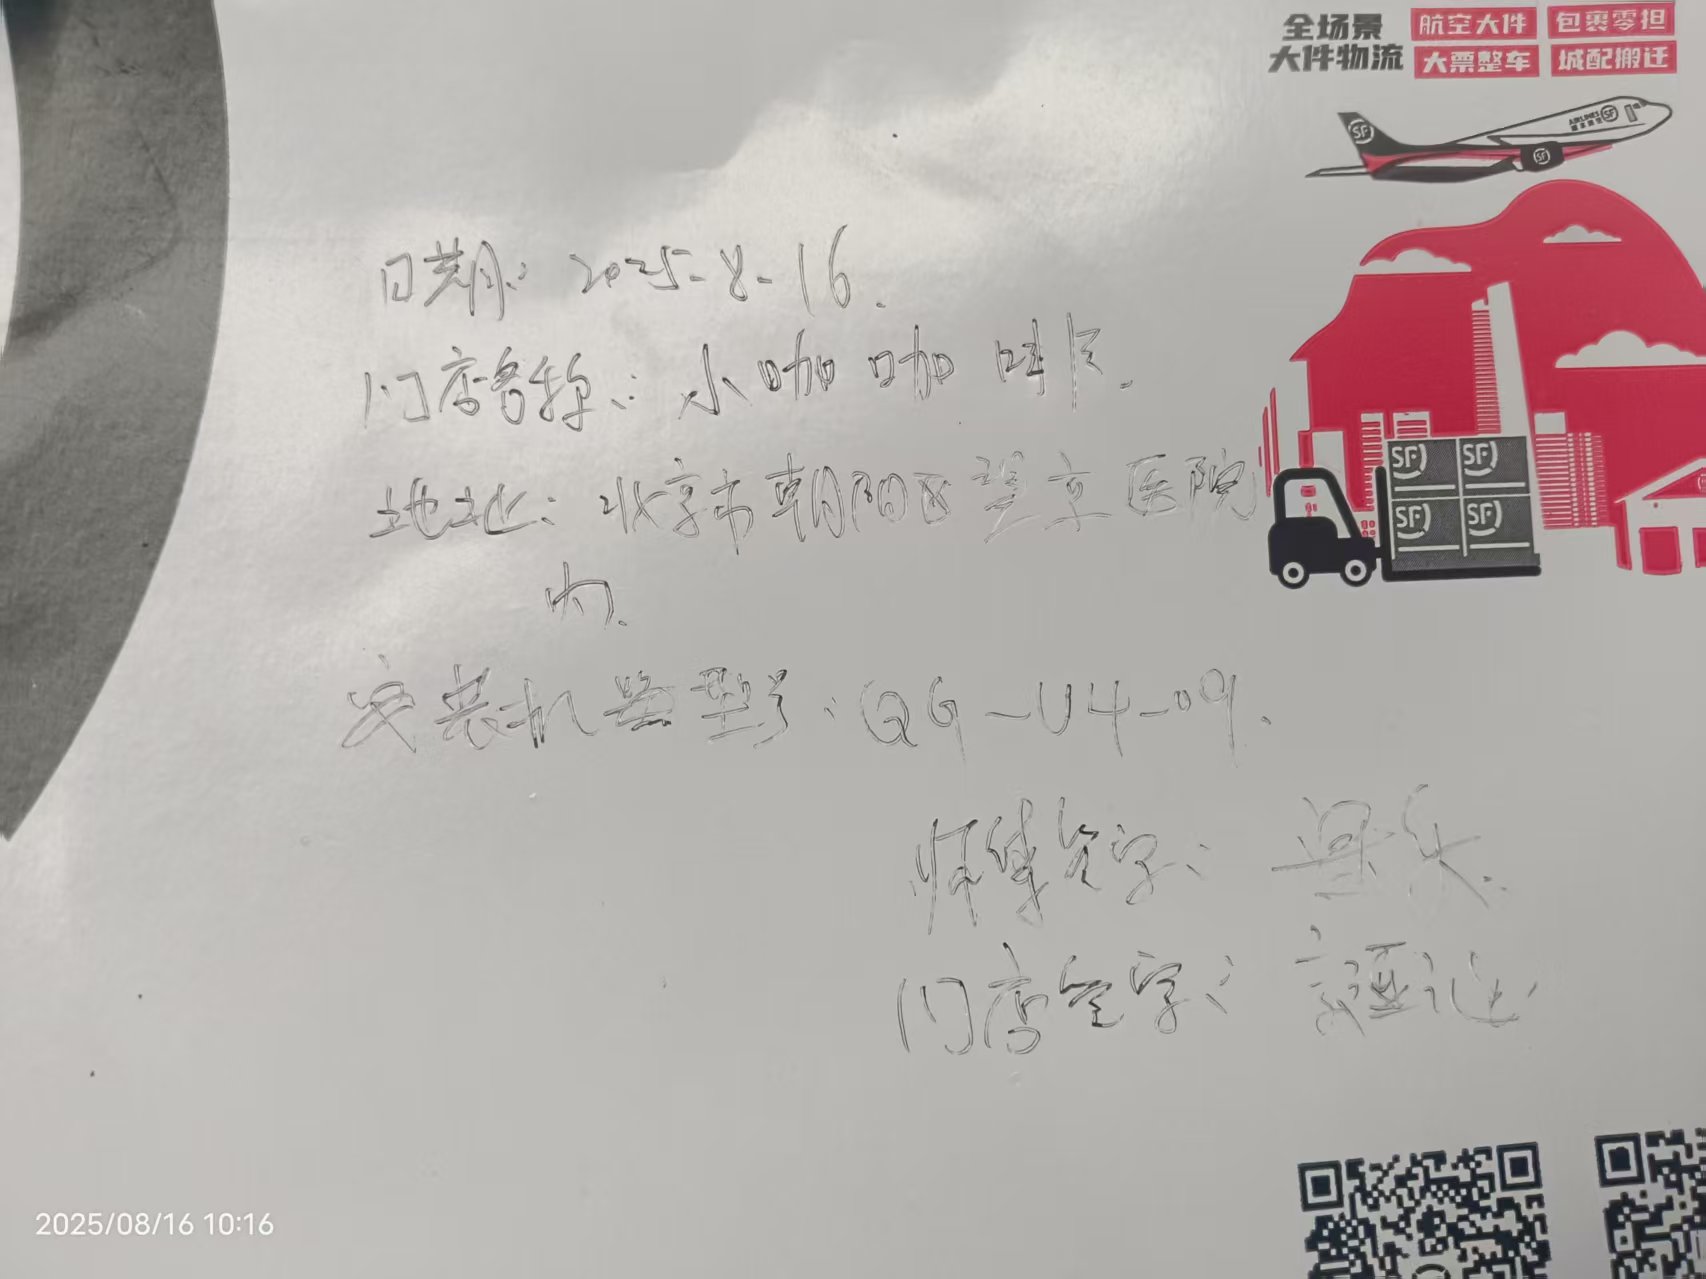 全场景
大件物流
航空大件
包裹零担
大票整车
城配搬迁
AIRLINES
SF
SF
SF
日期：2025-8-16.
门店名称：小咖咖啡.
地址：北京市朝阳区望京医院
内.
SF
SF
SF
SF
安装机器型号：QG-U4-09.
师傅签字：
门店签字：
2025/08/16 10:16